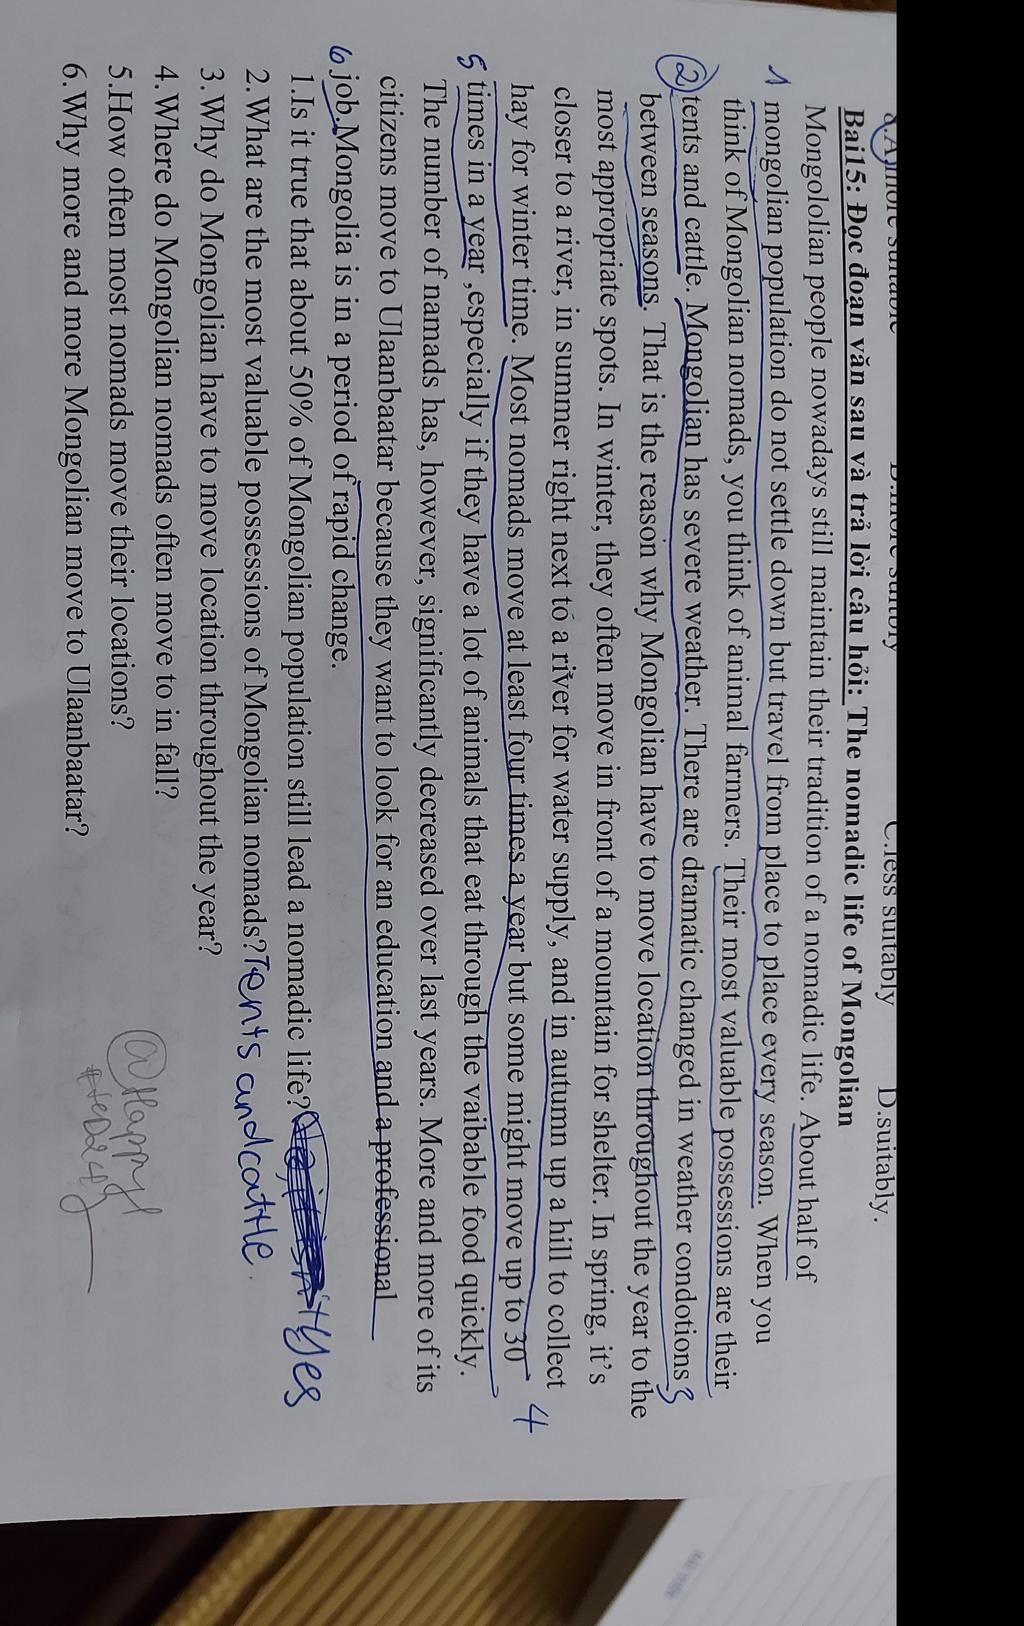 8.A)more suitable B.more suitably C.less suitably D.suitably.
Bai15: Đọc đoạn văn sau và trả lời câu hỏi: The nomadic life of Mongolian
Mongololian people nowadays still maintain their tradition of a nomadic life. About half of
1 mongolian population do not settle down but travel from place to place every season. When you
think of Mongolian nomads, you think of animal farmers. Their most valuable possessions are their
2 tents and cattle. Mongolian has severe weather. There are dramatic changed in weather condotions 3
between seasons. That is the reason why Mongolian have to move location throughout the year to the
most appropriate spots. In winter, they often move in front of a mountain for shelter. In spring, it's
closer to a river, in summer right next tó a river for water supply, and in autumn up a hill to collect
hay for winter time. Most nomads move at least four times a year but some might move up to 30 4
5 times in a year ,especially if they have a lot of animals that eat through the vaibable food quickly.
The number of namads has, however, significantly decreased over last years. More and more of its
citizens move to Ulaanbaatar because they want to look for an education and a professional
6 job.Mongolia is in a period of rapid change.
1.Is it true that about 50% of Mongolian population still lead a nomadic life? yes
2.What are the most valuable possessions of Mongolian nomads? Tents and cattle.
3.Why do Mongolian have to move location throughout the year?
4.Where do Mongolian nomads often move to in fall?
5.How often most nomads move their locations?
6.Why more and more Mongolian move to Ulaanbaatar?